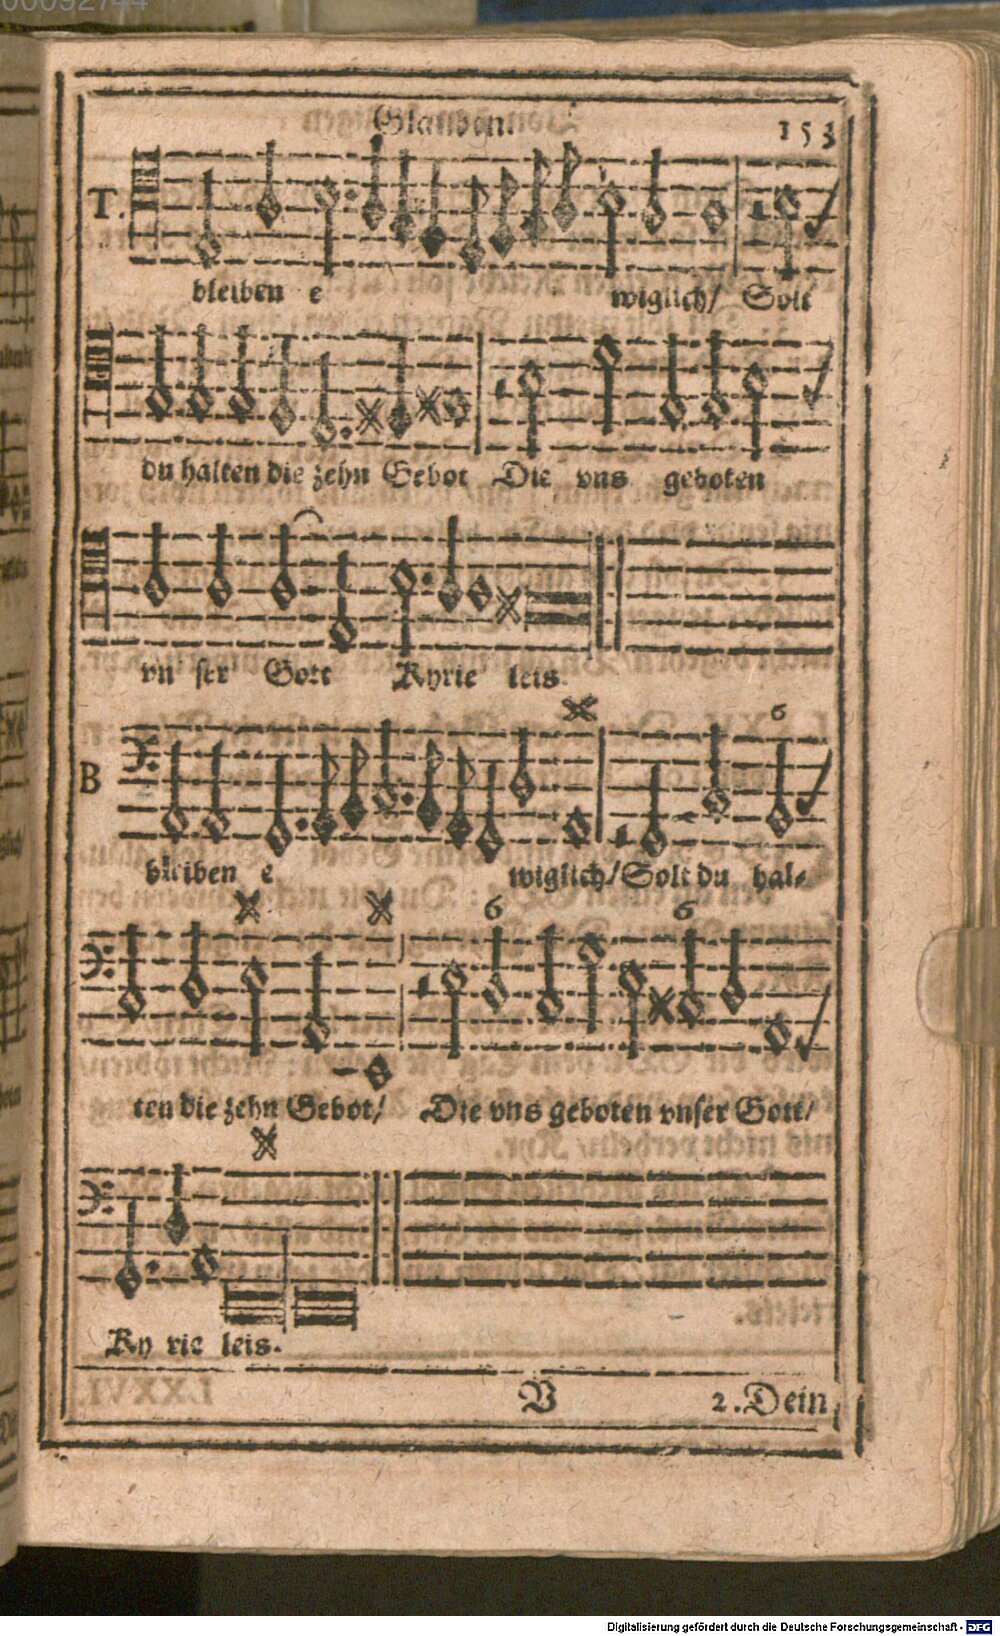 00092744
Glauben. 153
T.
bleiben e wiglich/ Solt
du halten die zehn Gebot Die vns geboten
vn ser Gott Kyrie leis.
6
B
bleiben e wiglich/ Solt du hal-
6 6
ten die zehn Gebot/ Die vns geboten vnser Gott/
Ky rie leis.
V 2. Dein
Digitalisierung gefördert durch die Deutsche Forschungsgemeinschaft - DFG